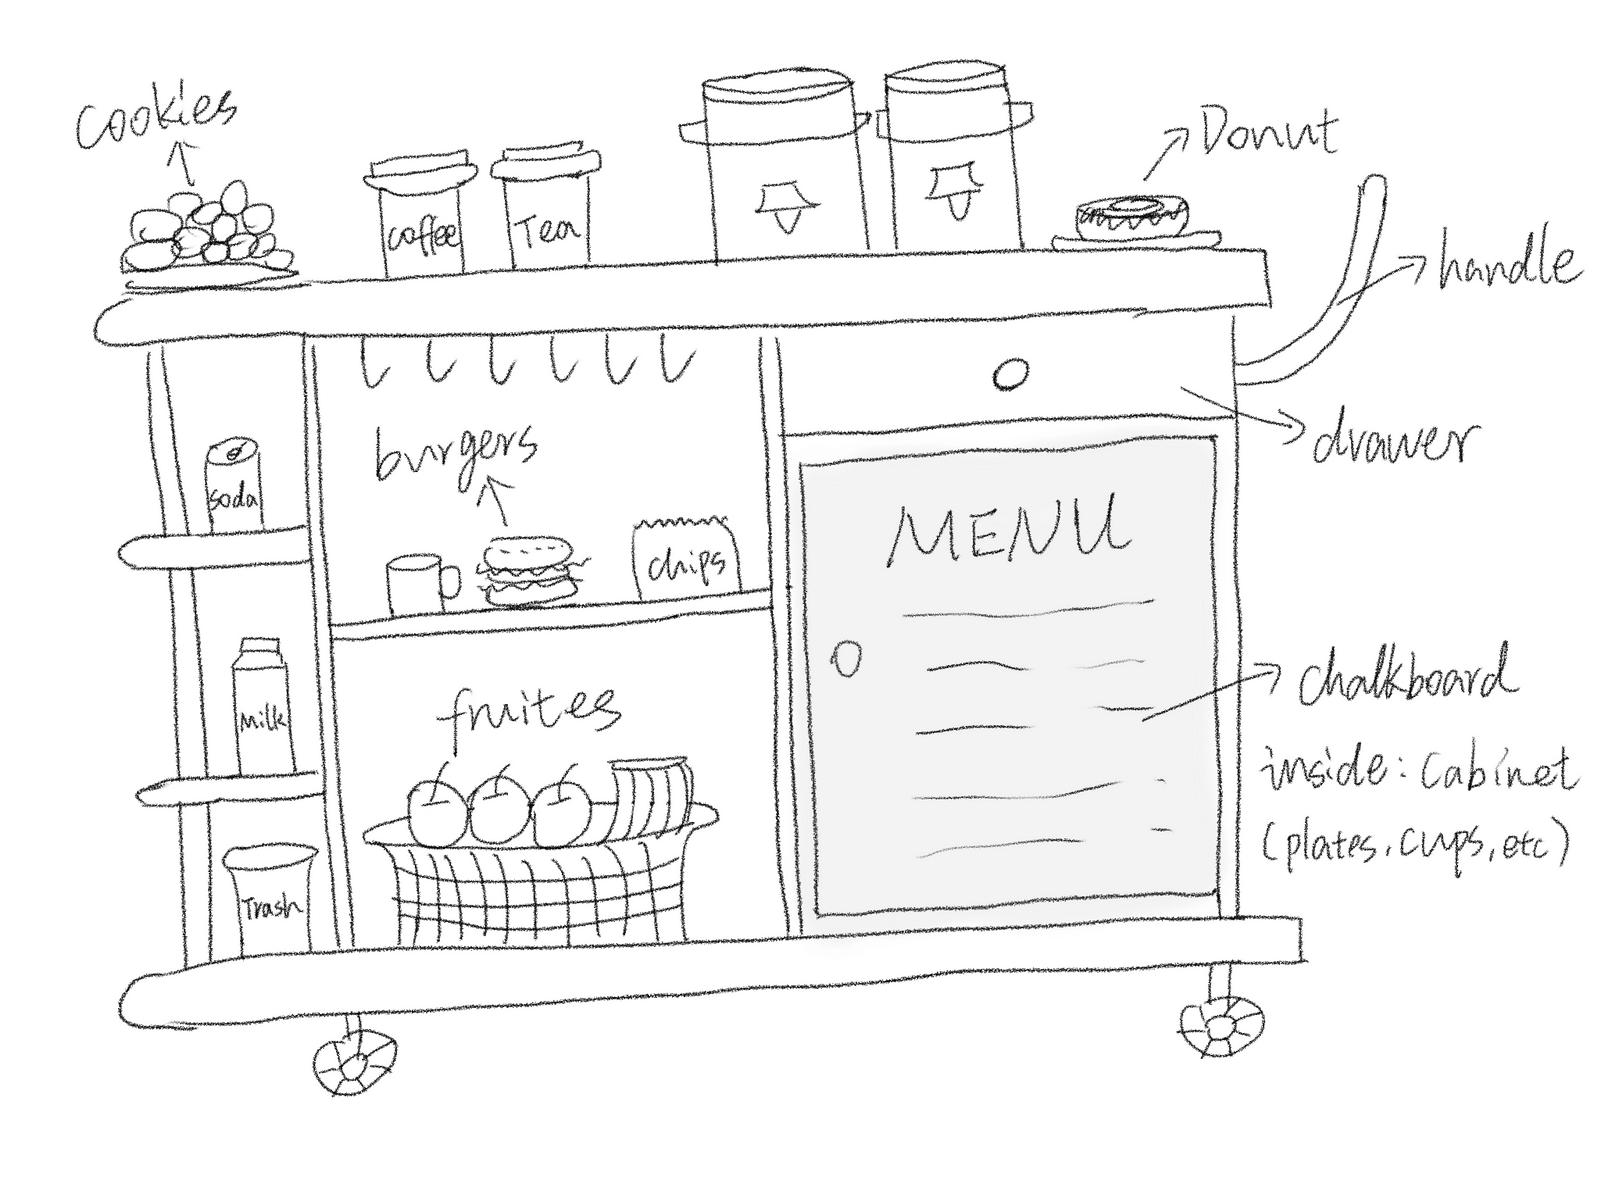 cookies
coffee
Tea
Donut
handle
drawer
burgers
soda
chips
MENU
Milk
fruites
chalkboard
inside: Cabinet
(plates, cups, etc)
Trash